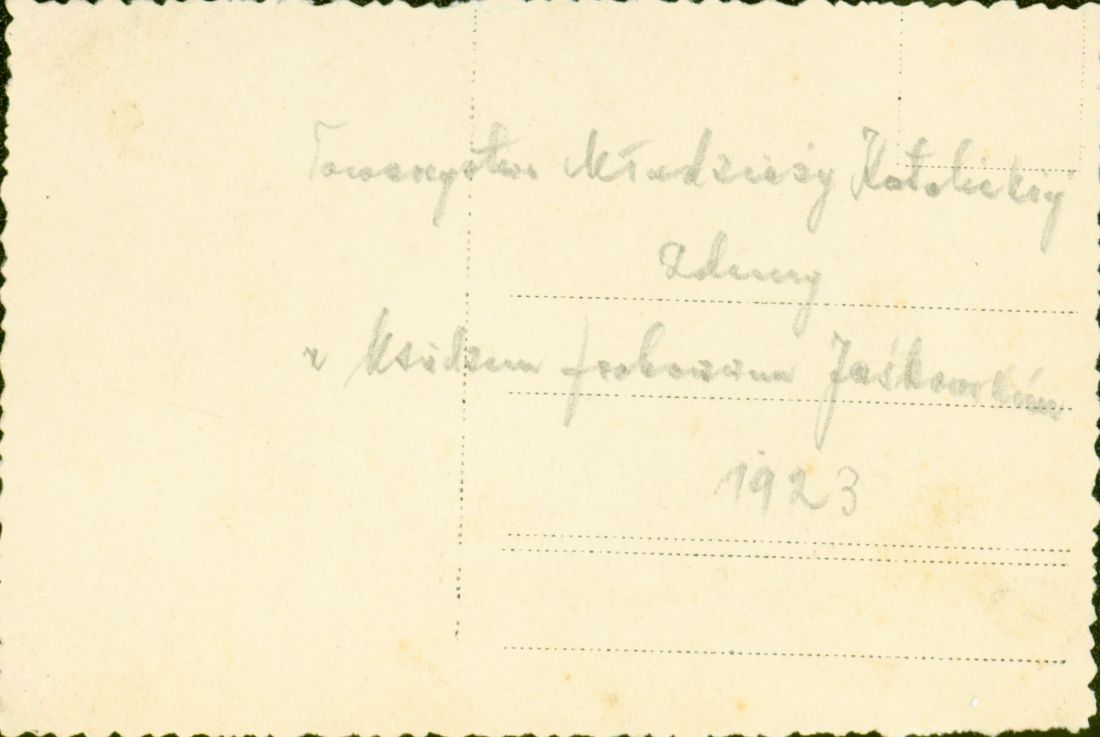 Towarzystwo Młodzieży Katolickiej
Zduny
z Księdzem proboszczem Jaśkowskim
1923